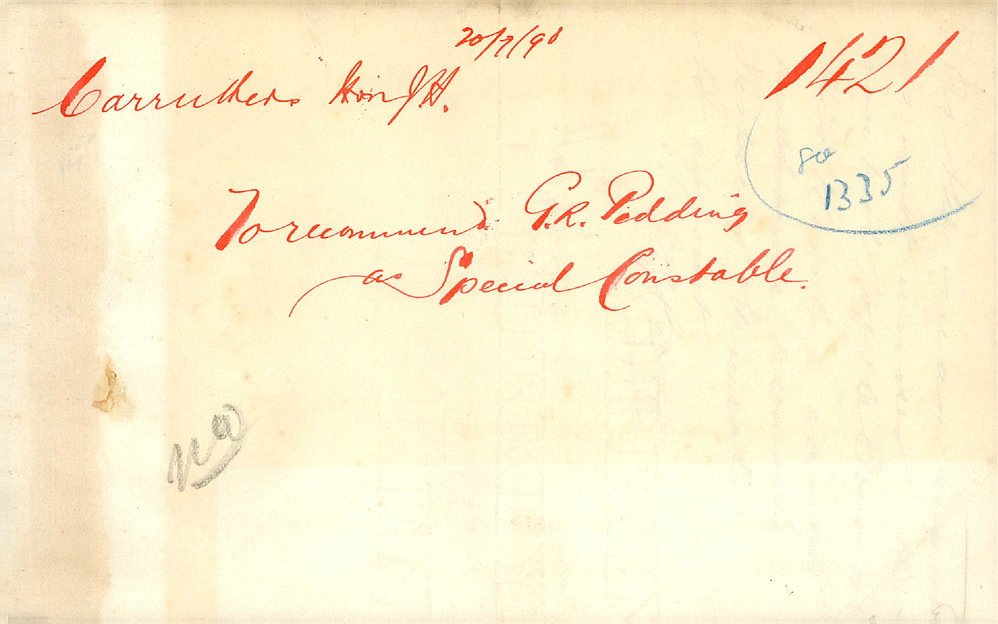 20/7/98
Carruthers Hon J.H.
1421
1335
To recommend G.R. Podding
as Special Constable.